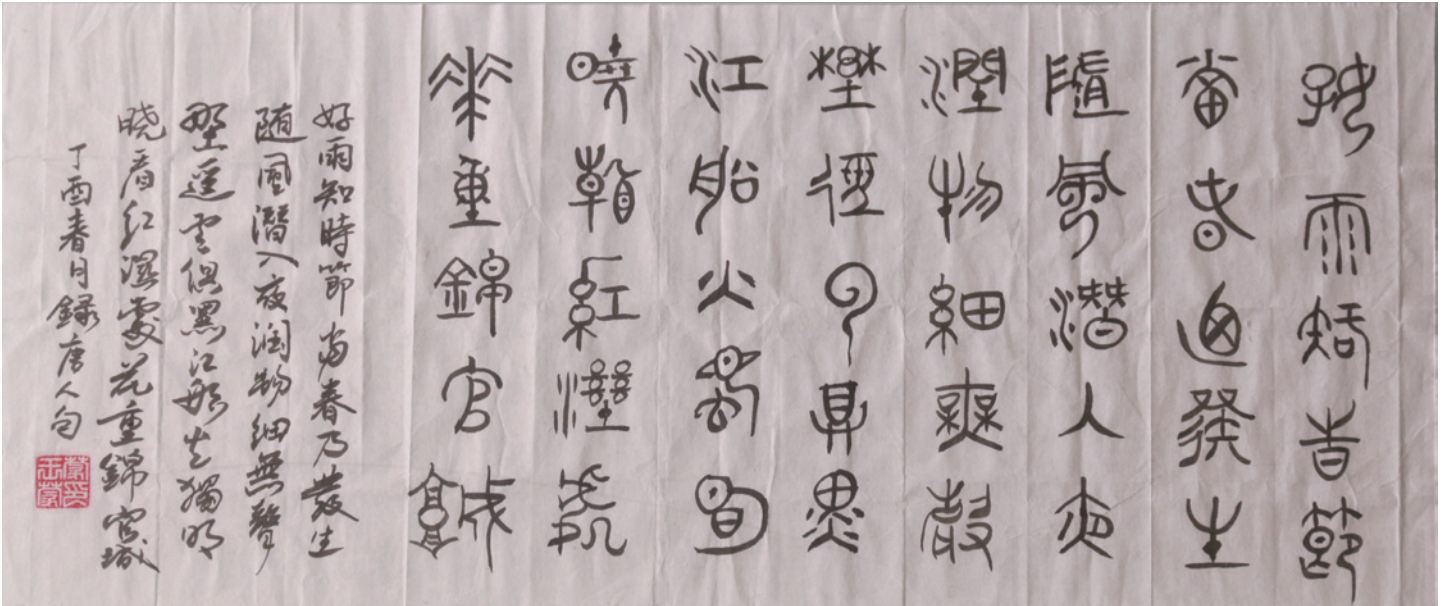 好雨知時節
當春迺發生
隨風潛入夜
潤物細無聲
野徑雲俱黑
江船火獨明
曉看紅濕處
華重錦官城
好雨知時節当春乃發生
随風潛入夜润物細無聲
野逕雲俱黑江船火獨明
晓看红濕處花重錦官城
丁酉春月録唐人句